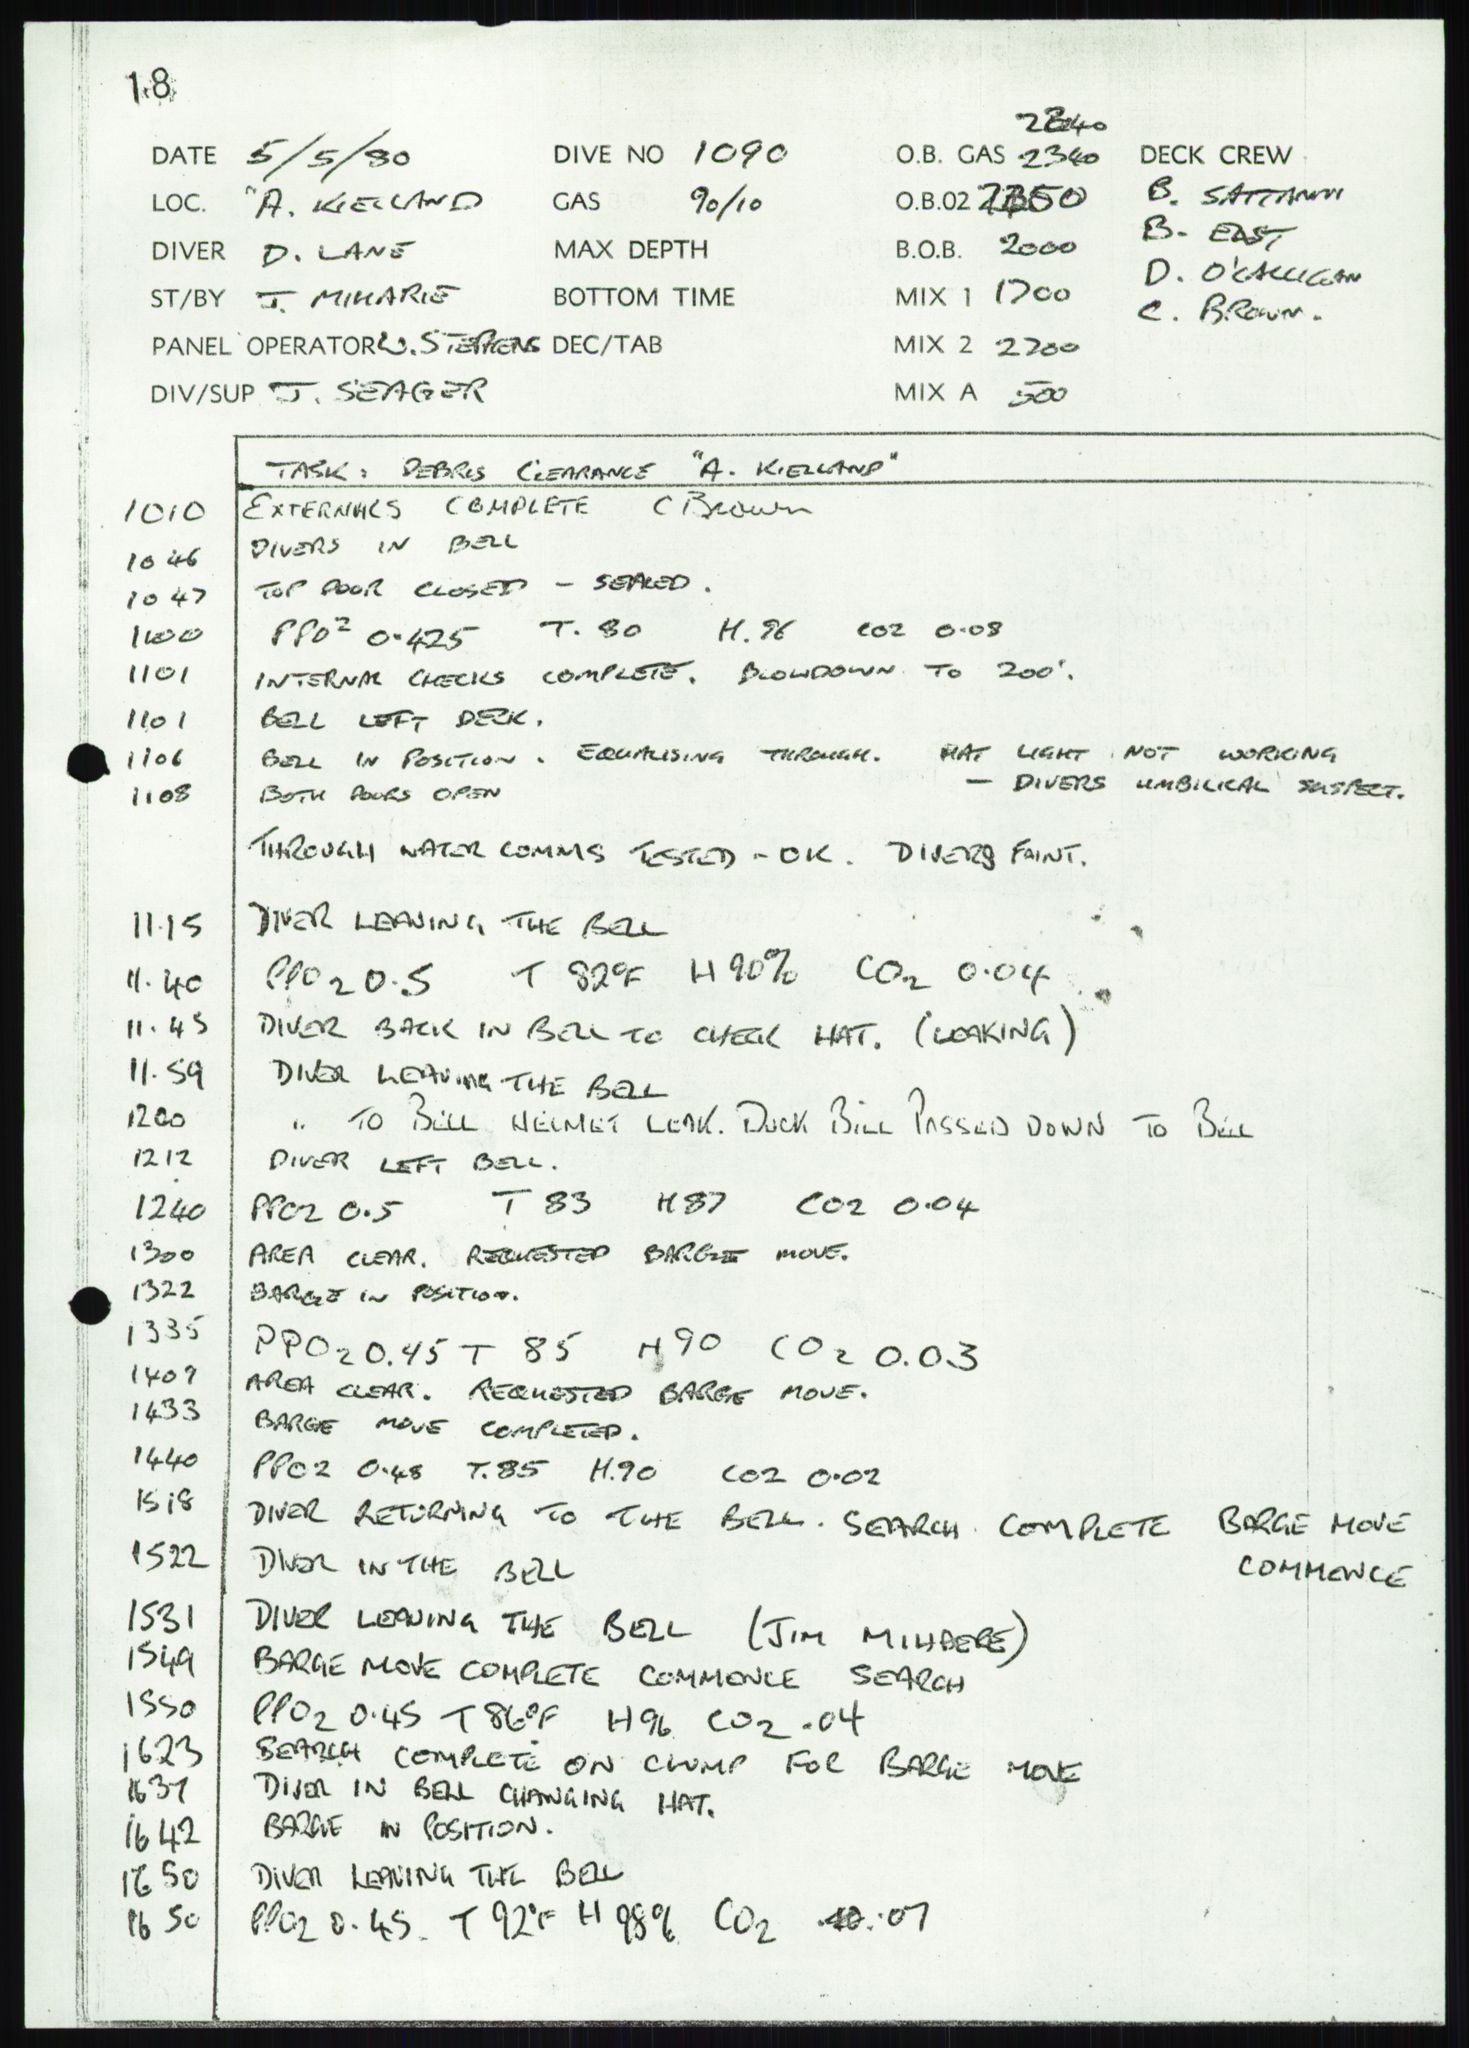 18
DATE 5/5/80 DIVE NO 1090 O.B. GAS 2340 DECK CREW
LOC. "A. KIELLAND GAS 90/10 O.B.02 B.
DIVER D. LANE MAX DEPTH B.O.B. 2000 B. EAST
ST/BY J. MIHARIE BOTTOM TIME MIX 1 1700 D. O'CALLIGAN
PANEL OPERATOR W. STEPHENS DEC/TAB MIX 2 2700 C. BROWN.
DIV/SUP J. SEAGER MIX A 500
TASK: DEBRIS CLEARANCE "A. KIELLAND"
1010 EXTERNALS COMPLETE C Brown
1046 DIVERS IN BELL
1047 TOP DOOR CLOSED - SEALED.
1100 PPO2 0.425 T. 80 H. 96 CO2 0.08
1101 INTERNAL CHECKS COMPLETE. BLOWDOWN TO 200'.
1101 BELL LEFT DECK.
1106 BELL IN POSITION. EQUALISING THROUGH. HAT LIGHT NOT WORKING
1108 BOTH DOORS OPEN - DIVERS UMBILICAL SUSPECT.
THROUGH WATER COMMS TESTED - OK. DIVERS FAINT.
11.15 DIVER LEAVING THE BELL
11.40 PPO2 0.5 T 82°F H 90% CO2 0.04
11.45 DIVER BACK IN BELL TO CHECK HAT. (LEAKING)
11.59 DIVER LEAVING THE BELL
1200 " TO BELL HELMET LEAK. DUCK BILL PASSED DOWN TO BELL
1212 DIVER LEFT BELL.
1240 PPO2 0.5 T 83 H 87 CO2 0.04
1300 AREA CLEAR. REQUESTED BARGE MOVE.
1322 BARGE IN POSITION.
1335 PPO2 0.45 T 85 H 90 CO2 0.03
1409 AREA CLEAR. REQUESTED BARGE MOVE.
1433 BARGE MOVE COMPLETED.
1440 PPO2 0.48 T. 85 H. 90 CO2 0.02
1518 DIVER RETURNING TO THE BELL. SEARCH COMPLETE BARGE MOVE
COMMENCE
1522 DIVER IN THE BELL
1531 DIVER LEAVING THE BELL (JIM MIHAERE)
1549 BARGE MOVE COMPLETE COMMENCE SEARCH
1550 PPO2 0.45 T 86°F H 96 CO2 .04
1623 SEARCH COMPLETE ON CLUMP FOR BARGE MOVE
1637 DIVER IN BELL CHANGING HAT.
1642 BARGE IN POSITION.
1650 DIVER LEAVING THE BELL
1650 PPO2 0.45 T 92°F H 98% CO2 .07